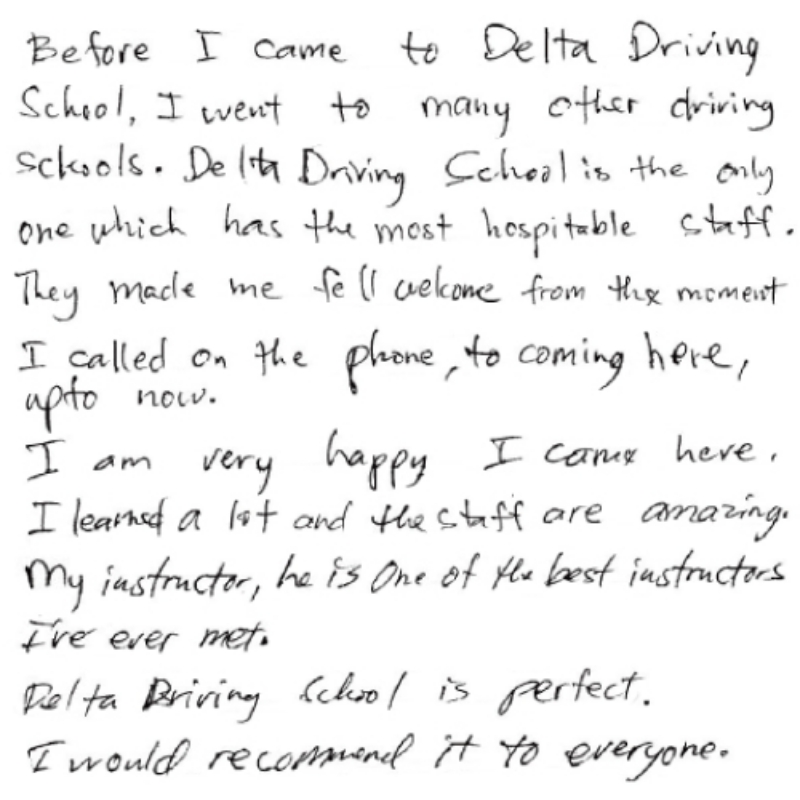 Before I came to Delta Driving
School, I went to many other driving
schools. Delta Driving School is the only
one which has the most hospitable staff.
They made me fell welcome from the moment
I called on the phone, to coming here,
upto now.
I am very happy I came here.
I learned a lot and the staff are amazing.
My instructor, he is One of the best instructors
I've ever met.
Delta Driving School is perfect.
I would recommend it to everyone.